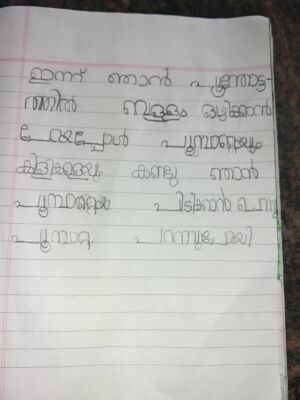 ഇന്ന് ഞാൻ പൂന്തോട്ട-
ത്തിൽ വെള്ളം ഒഴിക്കാൻ
പോയപ്പോൾ പൂമ്പാറ്റയെയും
കിളികളെയും കണ്ടു ഞാൻ
പൂമ്പാറ്റയെ പിടിക്കാൻ ചെന്നു
പൂമ്പാറ്റ പറന്നുപോയി